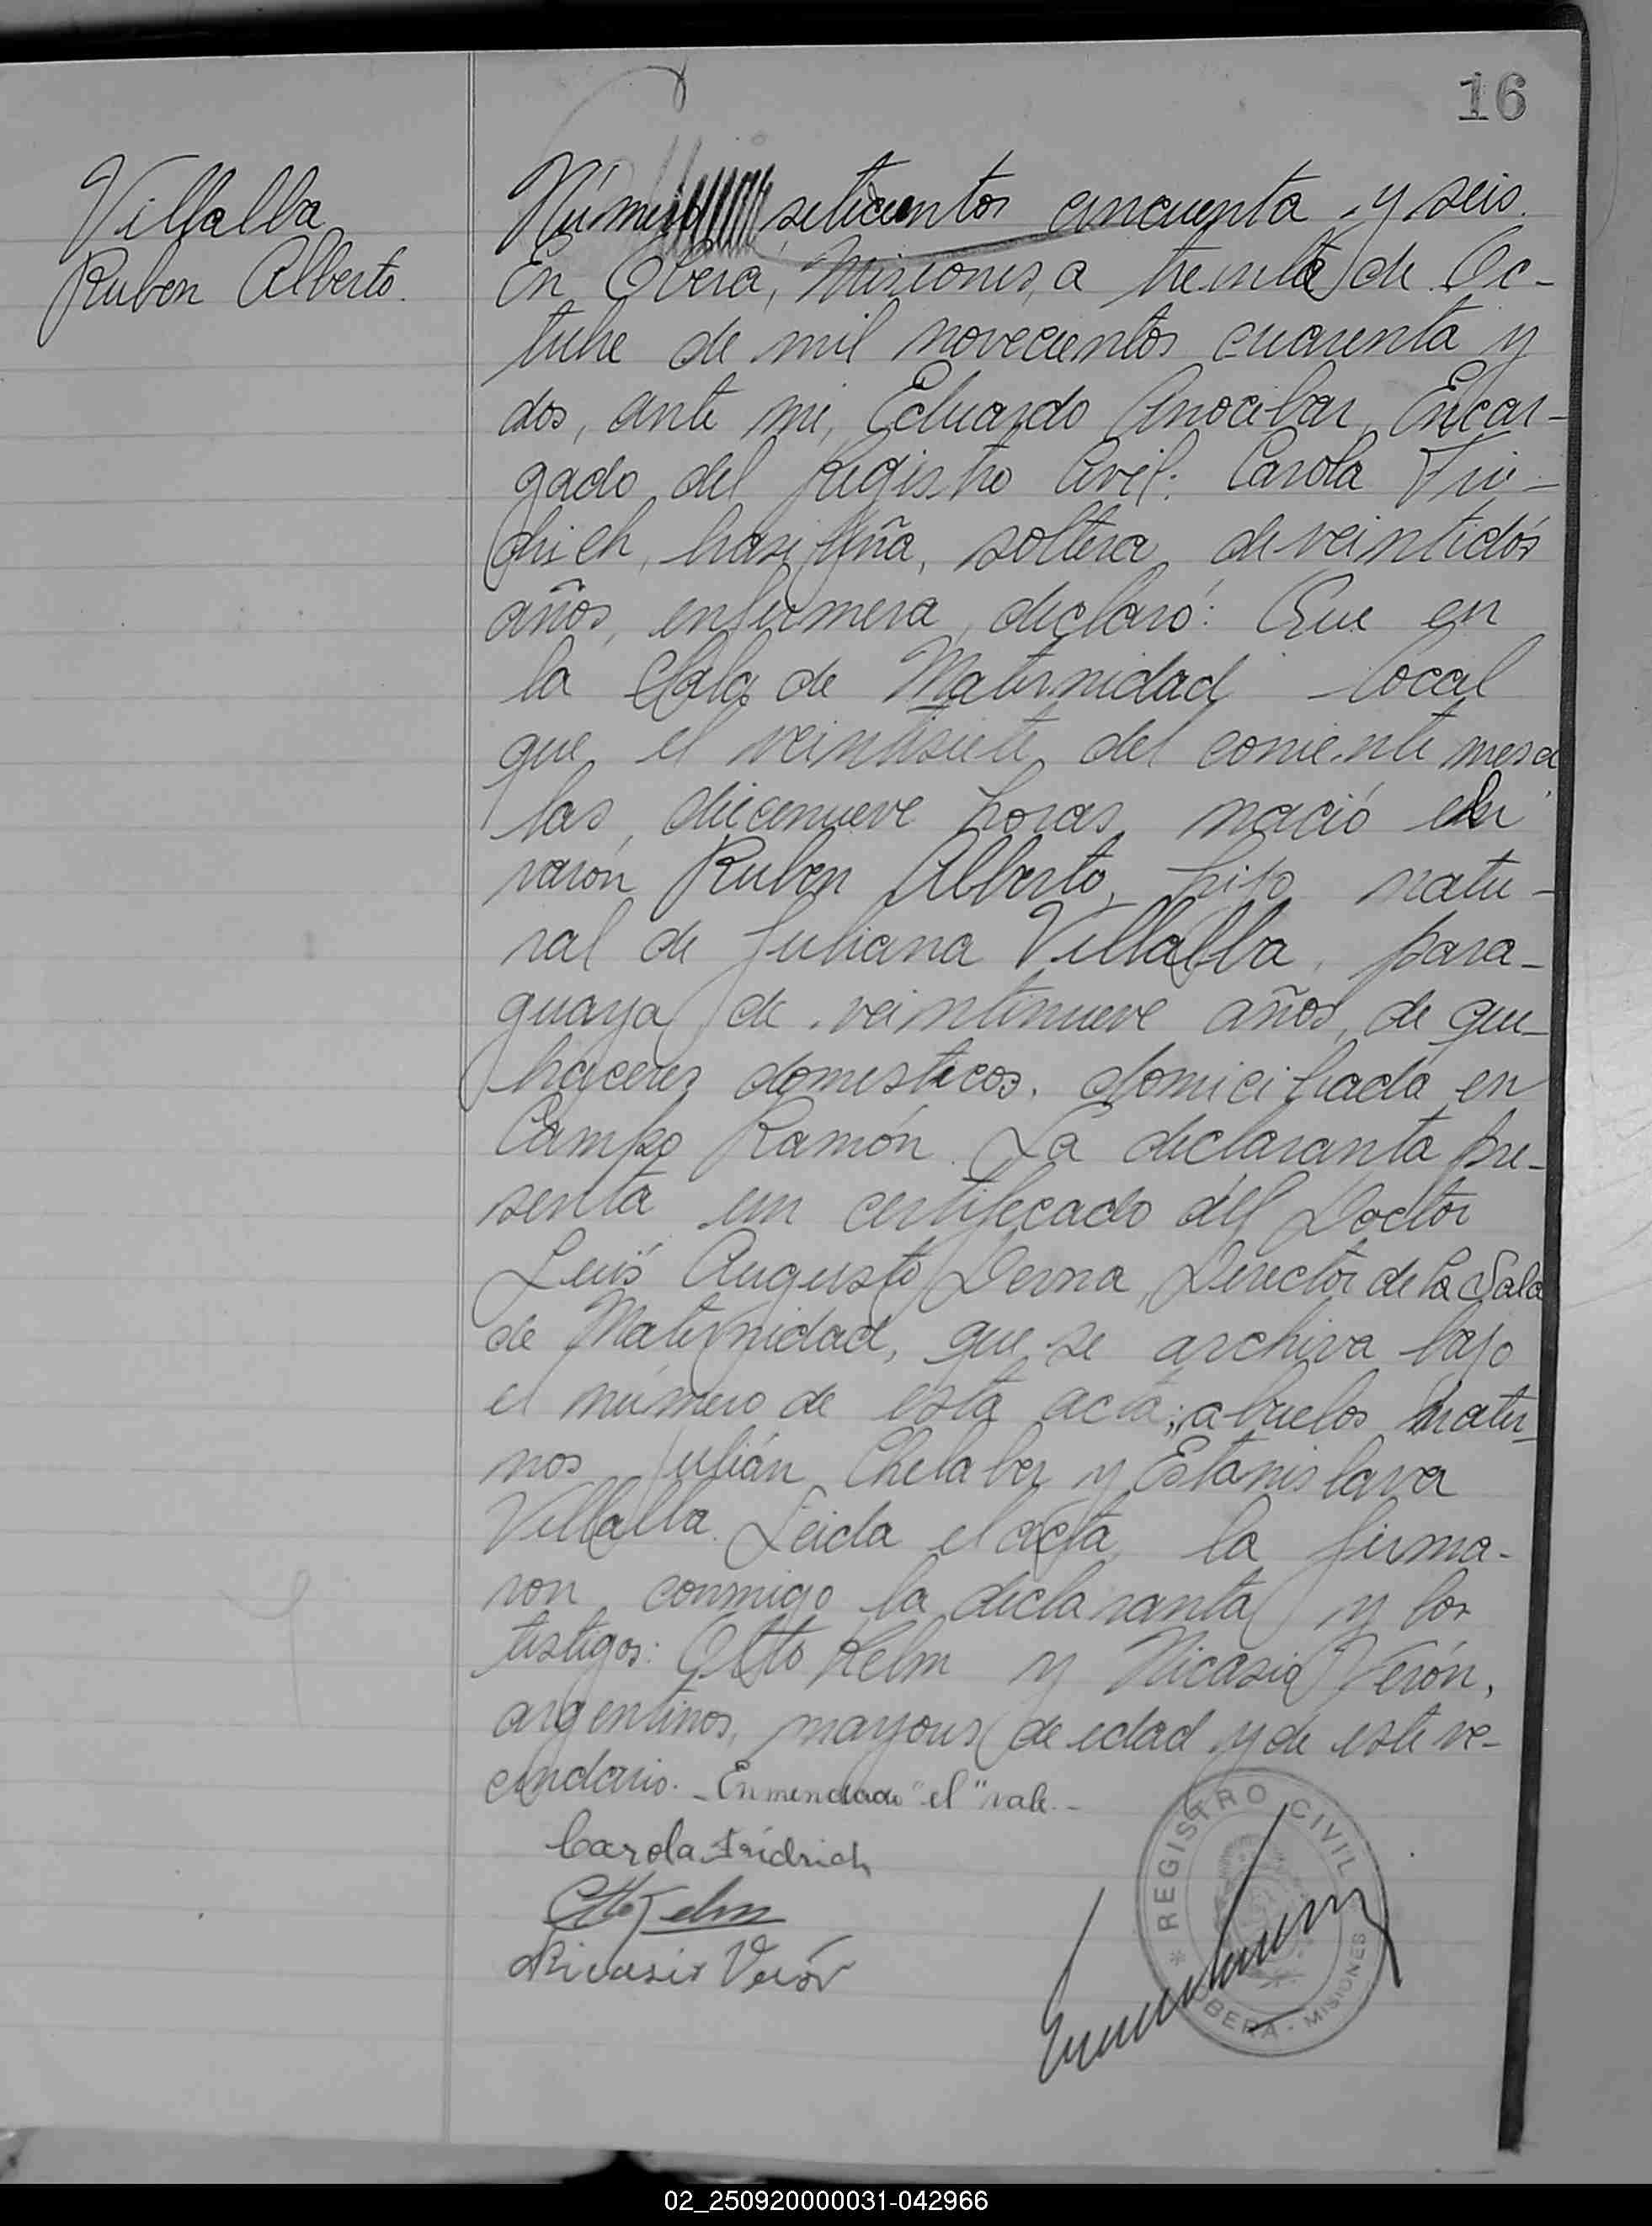 16
Villalba
Ruben Alberto.
Número setecientos cincuenta y seis.
En Oberá, Misiones, a treinta de Oc-
tubre de mil novecientos cuarenta y
dos, ante mi, Eduardo Anocibar, Encar-
gado del Registro Civil: Carola Fri-
drich, brasileña, soltera, de veintidós
años, enfermera, declaró: Que en
la Sala de Maternidad local
que el veintisiete del corriente mes a
las diecenueve horas nació el
varón Ruben Alberto, hijo natu-
ral de Juliana Villalba, para-
guaya de veintinueve años, de que-
haceres domesticos, domiciliada en
Campo Ramón. La declaranta pre-
senta un certificado del Doctor
Luis Augusto Derna, Director de la Sala
de Maternidad, que se archiva bajo
el número de esta acta; abuelos mater-
nos Julián Chelaber y Estanislava
Villalba. Leida el acta, la firma-
ron conmigo la declaranta y los
testigos: Otto Kelm y Nicasio Verón,
argentinos, mayores de edad y de este ve-
cindario. - Enmendado "el" vale. -
Carola Fridrich
Otto Kelm
Nicasio Verón
* REGISTRO CIVIL
OBERA - MISIONES
02_250920000031-042966